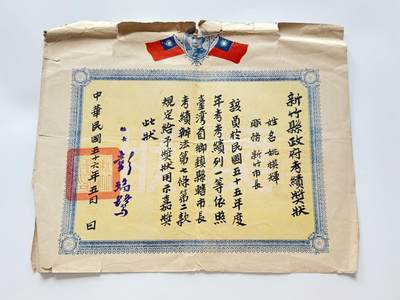 新竹縣政府考績獎狀
姓名 姚棋輝
職務 新竹市長
該員於民國五十五年度
年考考績列一等依照
臺灣省鄉鎮縣轄市長
考績辦法第七條第二款
規定給予獎狀用示嘉獎
此狀
縣長 彭瑞鷺
中華民國五十六年五月 日